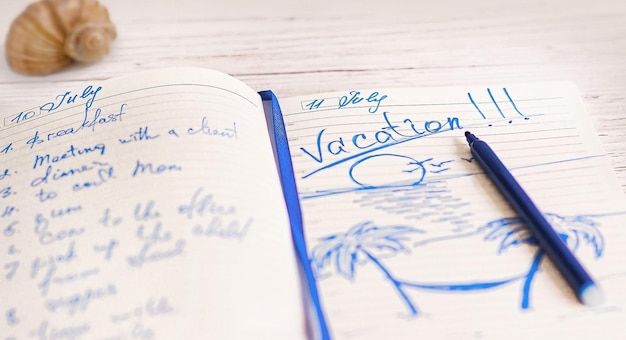 10 July
1. Breakfast
2. Meeting with a client
3. Dinner
4. to call Mom
5 Gum
6 to the office
7 pick up the child
from
8
11 July
Vacation!!!